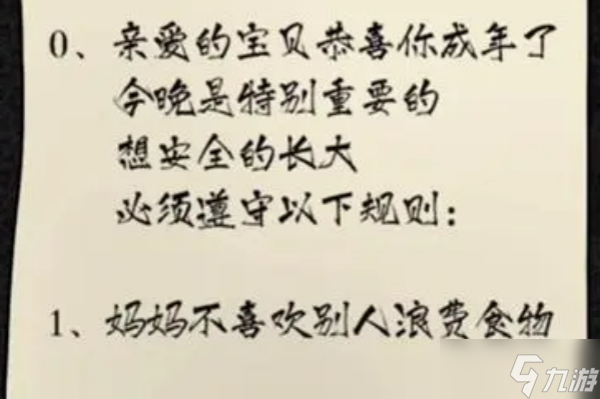 0、亲爱的宝贝恭喜你成年了
今晚是特别重要的
想安全的长大
必须遵守以下规则：
1、妈妈不喜欢别人浪费食物
九游